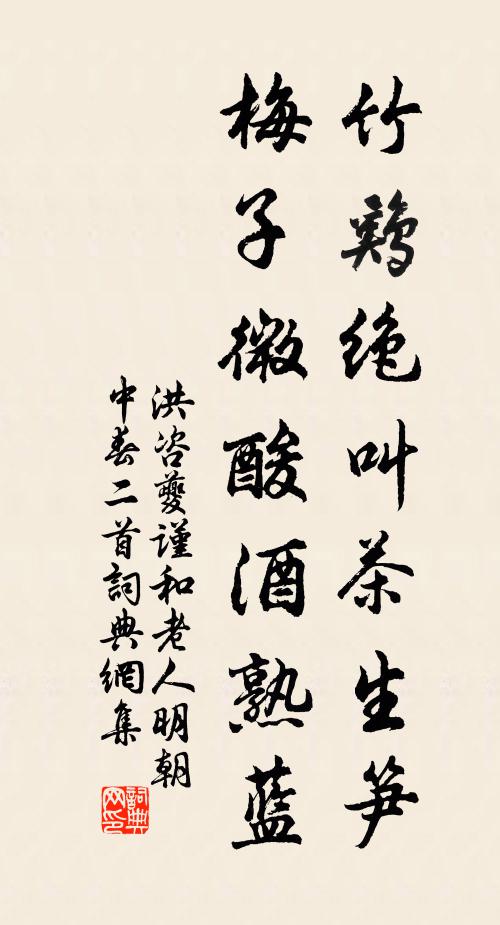 竹鷄绝叫茶生笋
梅子微酸酒熟蓝
洪咨夔謹和老人明朝
中春二首詞典網集
詞典网印